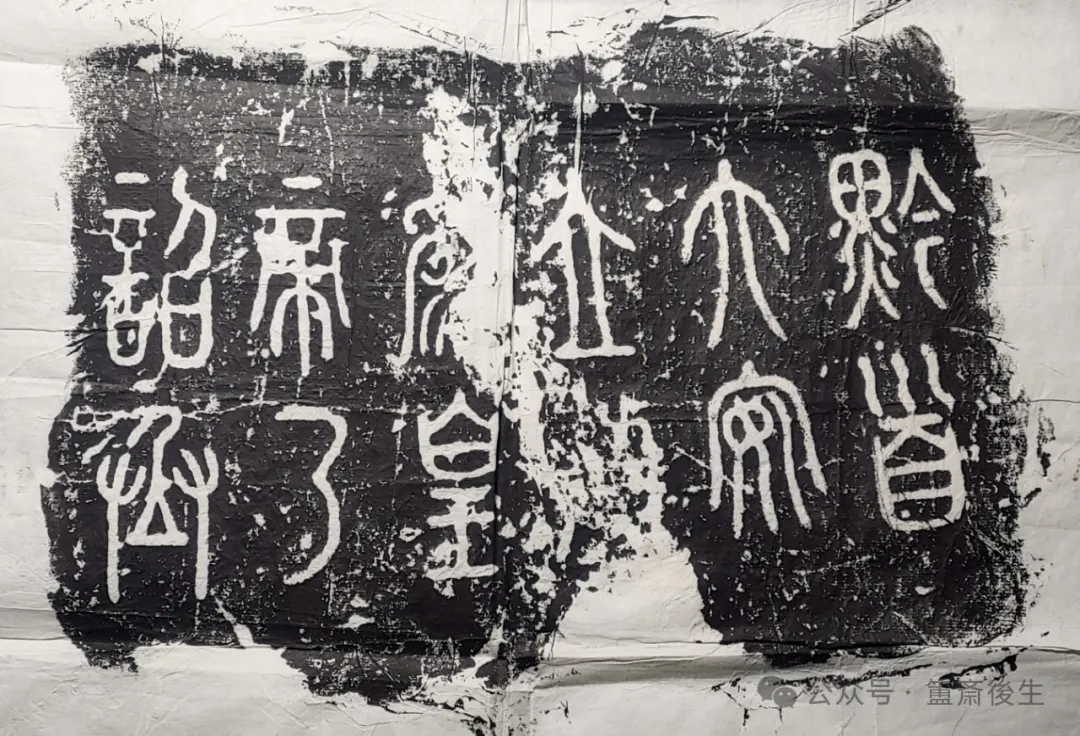 黔首
大安
立
為皇
帝乃
詔丞
公众号 · 簠斋後生